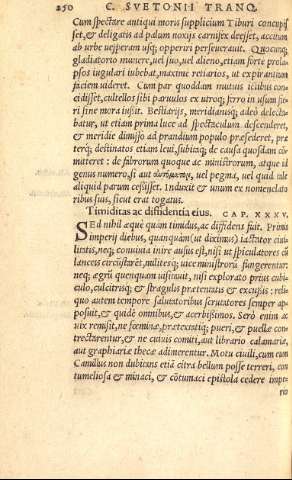 250 C. SVETONII TRANQ.
Cum spectare antiqui moris supplicium Tiburi concupis
set, & deligatis ad palum noxijs carnifex deesset, accitum
ab urbe uesperam usq; opperiri perseuerauit. Quocunq;
gladiatorio munere, uel suo, uel alieno, etiam forte prola-
psos iugulari iubebat, maxime retiarios, ut expirantium
faciem uideret. Cum par quoddam mutuis ictibus con
cidisset, cultellos sibi paruulos ex utroq; ferro in usum fie
ri sine mora iussit. Bestiarijs, meridianisq; adeò delecta-
batur, ut etiam prima luce ad spectaculum descenderet,
& meridie dimisso ad prandium populo præsederet, præ
terq; destinatos etiam leui, subitaq; de causa quosdam cō
mitteret: de fabrorum quoque ac ministrorum, atque id
genus numero, si aut αὐτόματον, uel pegma, uel quid tale
aliquid parum cessisset. Induxit & unum ex nomenclato
ribus suis, sicut erat togatus.
Timiditas ac diffidentia eius. CAP. XXXV.
Sed nihil æquè quam timidus, ac diffidens fuit. Primis
imperij diebus, quanquam (ut diximus) iactator ciui-
litatis, neq; conuiuia inire ausus est, nisi ut spiculatores cū
lanceis circūstarēt, militesq; uice ministrorū fungerentur:
neq; ægrū quenquam uisitauit, nisi explorato prius cubi-
culo, culcitrisq; & stragulis prætentatis & excussis: reli-
quo autem tempore salutatoribus scrutatores semper ap
posuit, & quidē omnibus, & acerbissimos. Serò enim ac
uix remisit, ne fœminæ, prætextatiq; pueri, & puellæ con
trectarentur, & ne cuiuis comiti, aut librario calamariæ,
aut graphiariæ thecæ adimerentur. Motu ciuili, cum eum
Camillus non dubitans etiā citra bellum posse terreri, con
tumeliosa & minaci, & cōtumaci epistola cedere impe-
rio